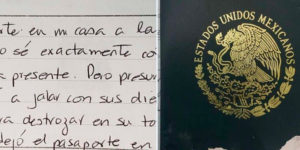 rte en mi casa a la
o sé exactamente co
a presente. Pero presur
a jalar con sus die
ra destrozar en su to
dejó el pasaporte en
ESTADOS UNIDOS MEXICANOS